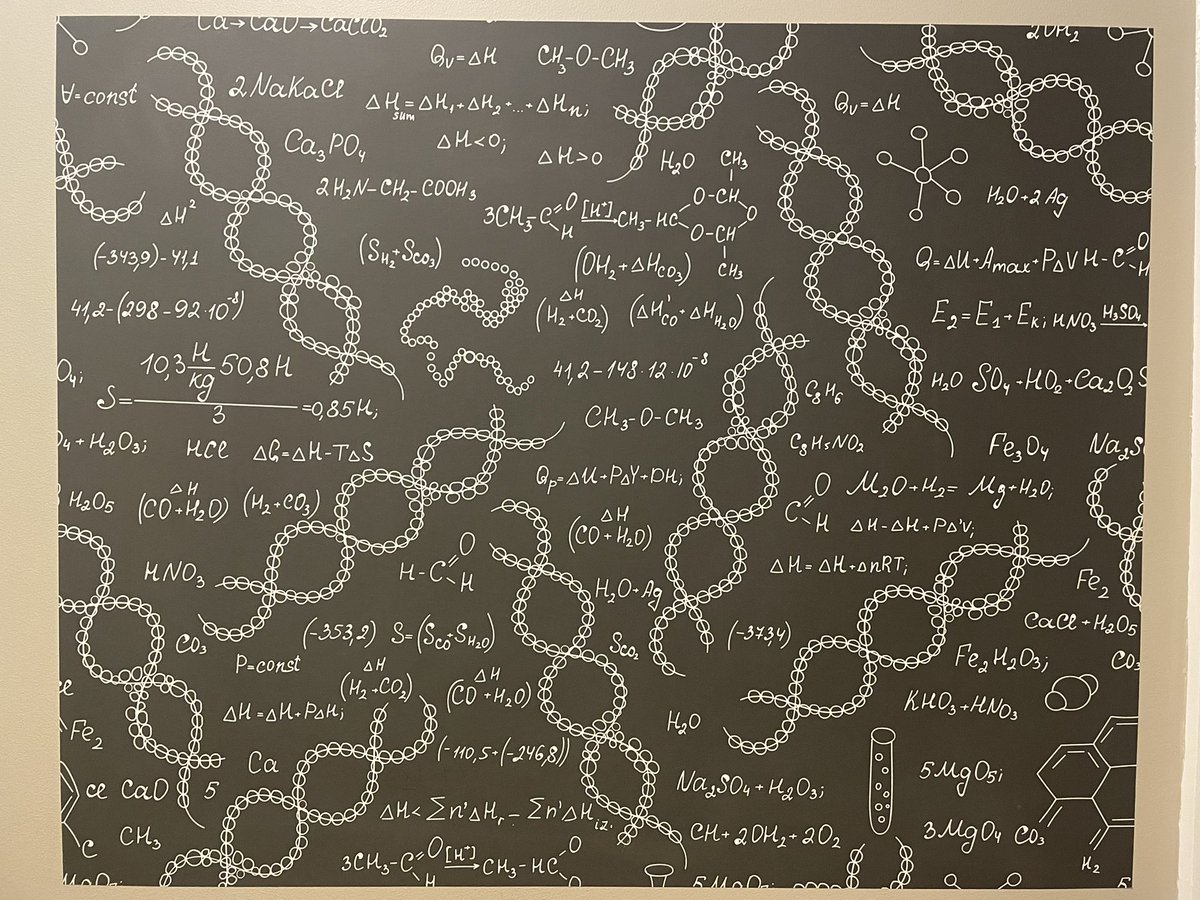 Ca→CaO→CaClO₂
2OH₂
Qᵥ=ΔH
CH₃-O-CH₃
V=const
2NaKaCl
ΔH sum=ΔH₁+ΔH₂+...+ΔHₙ;
Qᵥ=ΔH
Ca₃PO₄
ΔH<0;
ΔH>0
H₂O
CH₃
2H₂N-CH₂-COOH₃
H₂O+2Ag
ΔH²
3CH₃-C
O
H
[H⁺]
CH₃-HC
O-CH
O
O-CH
CH₃
(-343,9)-41,1
(S H₂+S CO₃)
(OH₂+ΔH CO₃)
Q=ΔU+Amax+PΔV
H-C
O
H
41,2-(298-92·10⁻⁸)
ΔH
(H₂+CO₂)
(ΔH'CO+ΔH H₂O)
E₂=E₁+Eₖ;
HNO₃
H₃SO₄
O₄;
S=
10,3 H/kg 50,8H
3
=0,85H;
41,2-148·12·10⁻⁸
C₈H₆
H₂O
SO₄+HO₂+Ca₂O₂S
CH₃-O-CH₃
O₄+H₂O₃;
HCl
ΔG=ΔH-TΔS
C₈H₅NO₂
Fe₃O₄
Na₂S
Qₚ=ΔU+PΔY+DH;
H₂O₅
ΔH
(CO+H₂O)
(H₂+CO₃)
C
O
H
M₂O+H₂=
Mg+H₂O;
ΔH
(CO+H₂O)
ΔH-ΔH+PΔ'V;
HNO₃
H-C
O
H
ΔH=ΔH+ΔnRT;
H₂O+Ag
Fe₂
CO₃
(-353,2)
S=(S CO+S H₂O)
S CO₂
(-3734)
CaCl+H₂O₅
P=const
ΔH
(H₂+CO₂)
ΔH
(CO+H₂O)
Fe₂H₂O₃;
CO₃
ce
ΔH=ΔH+PΔH;
H₂O
KHO₃+HNO₃
Fe₂
Ca
(-110,5+(-246,8))
5MgO₅;
ce
CaO
5
Na₂SO₄+H₂O₃;
ΔH<Σn'ΔHᵣ-Σn'ΔH i.z.
CH₃
C
CH+2OH₂+2O₂
3MgO₄
CO₃
3CH₃-C
O
H
[H⁺]
CH₃-HC
O
H₂
MgO₅;
5MgO₅;
5